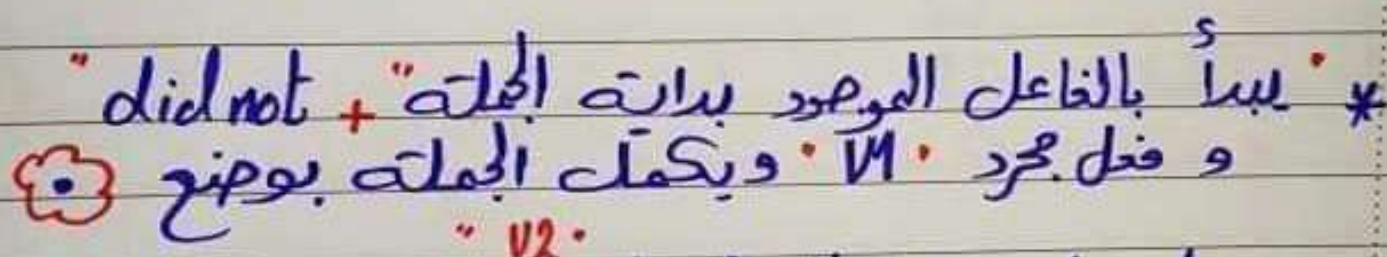 * " يبدأ بالفاعل الموجود بداية الجملة " + did not "
و فعل مجرد " V1 " ويكمل الجملة بوضع .
" V2 "